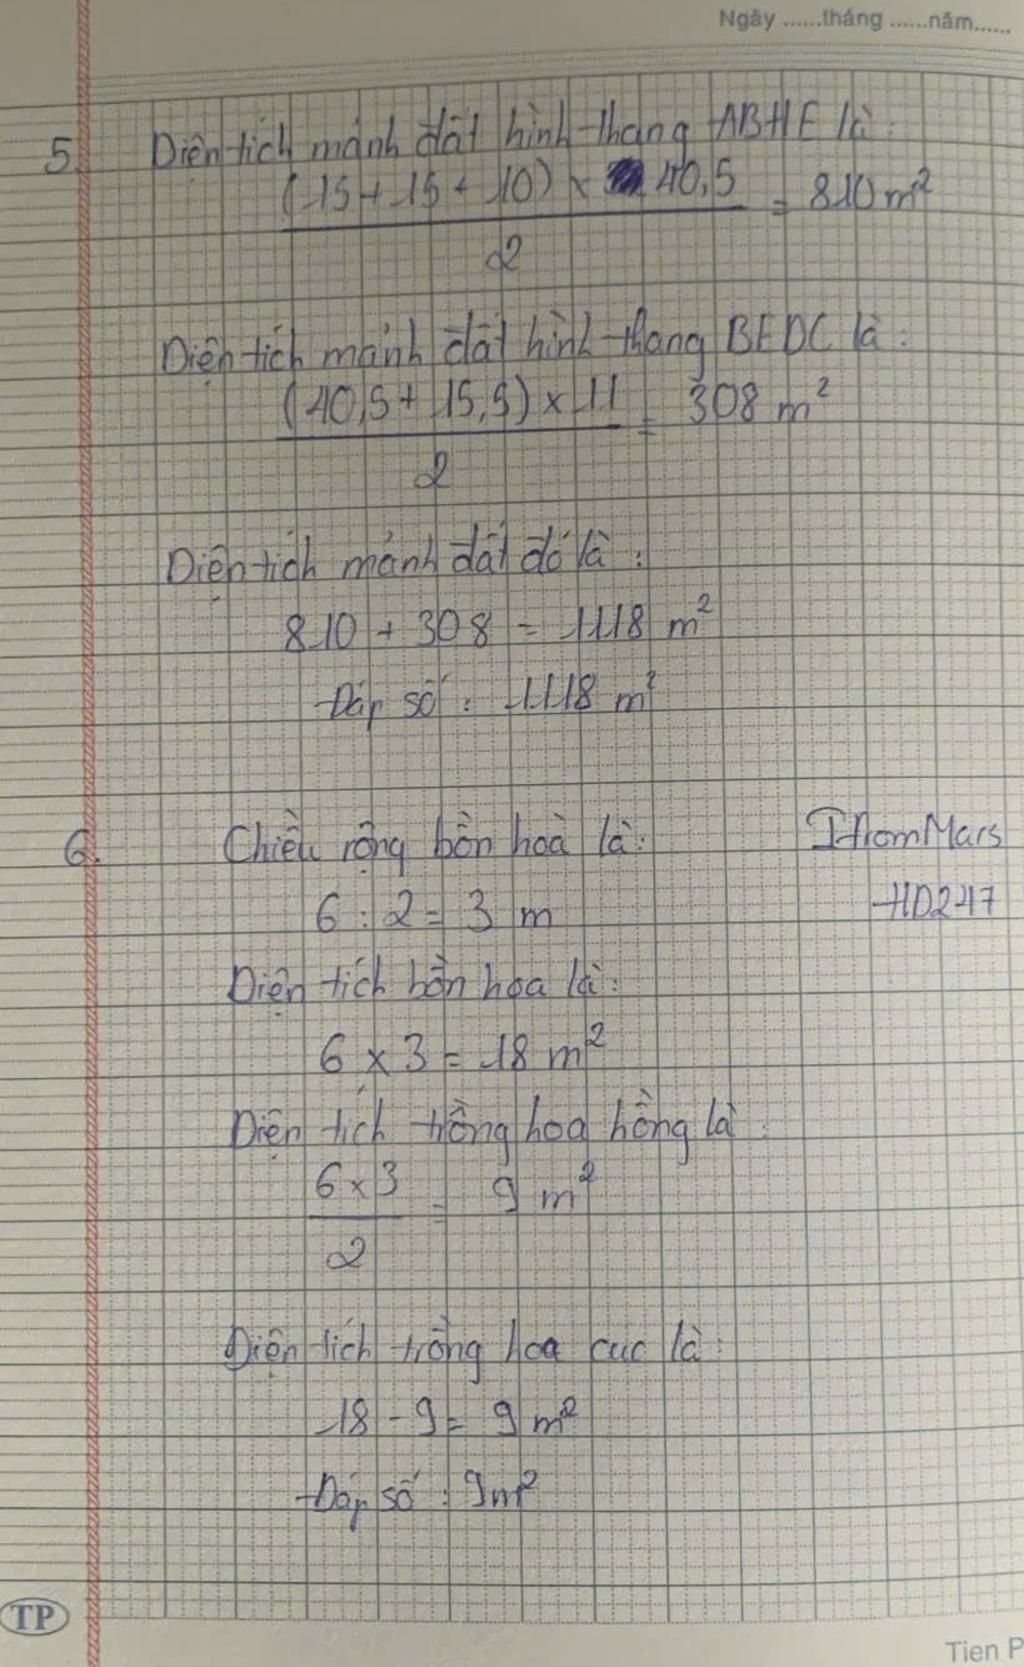 Ngày ......tháng ......năm......
5. Diện tích mảnh đất hình thang ABHE là:
(15 + 15 + 10) x 40,5
= 810 m²
2
Diện tích mảnh đất hình thang BEDC là:
(40,5 + 15,5) x 11
= 308 m²
2
Diện tích mảnh đất đó là:
810 + 308 = 1118 m²
Đáp số: 1118 m²
6. Chiều rộng bồn hoà là:
IfromMars
6 : 2 = 3 m
HD247
Diện tích bồn hoa là:
6 x 3 = 18 m²
Diện tích trồng hoa hồng là:
6 x 3
= 9 m²
2
Diện tích trồng hoa cúc là:
18 - 9 = 9 m²
Đáp số: 9m²
TP
Tien P